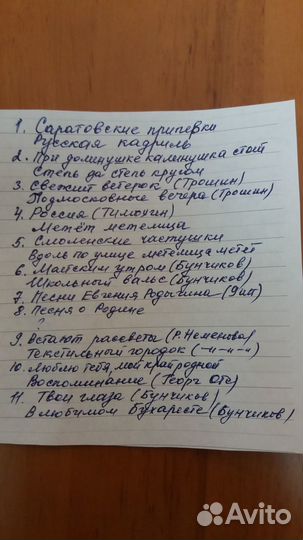 1. Саратовские припевки
Русская кадриль
2. При долинушке калинушка стоит
Степь да степь кругом
3. Свежий ветерок (Трошин)
Подмосковные вечера (Трошин)
4. Россия (Тимохин)
Метёт метелица
5. Смоленские частушки
Вдоль по улице метелица метёт
6. Майским утром (Бунчиков)
Школьный вальс (Бунчиков)
7. Песни Евгения Родыгина (9шт)
8. Песня о Родине
?
9. Встают рассветы (Р. Неменова)
Текстильный городок (-"-"-"-)
10. Люблю тебя, мой край родной
Воспоминание (Георг Отс)
11. Твои глаза (Бунчиков)
В любимом Бухаресте (Бунчиков)
Avito